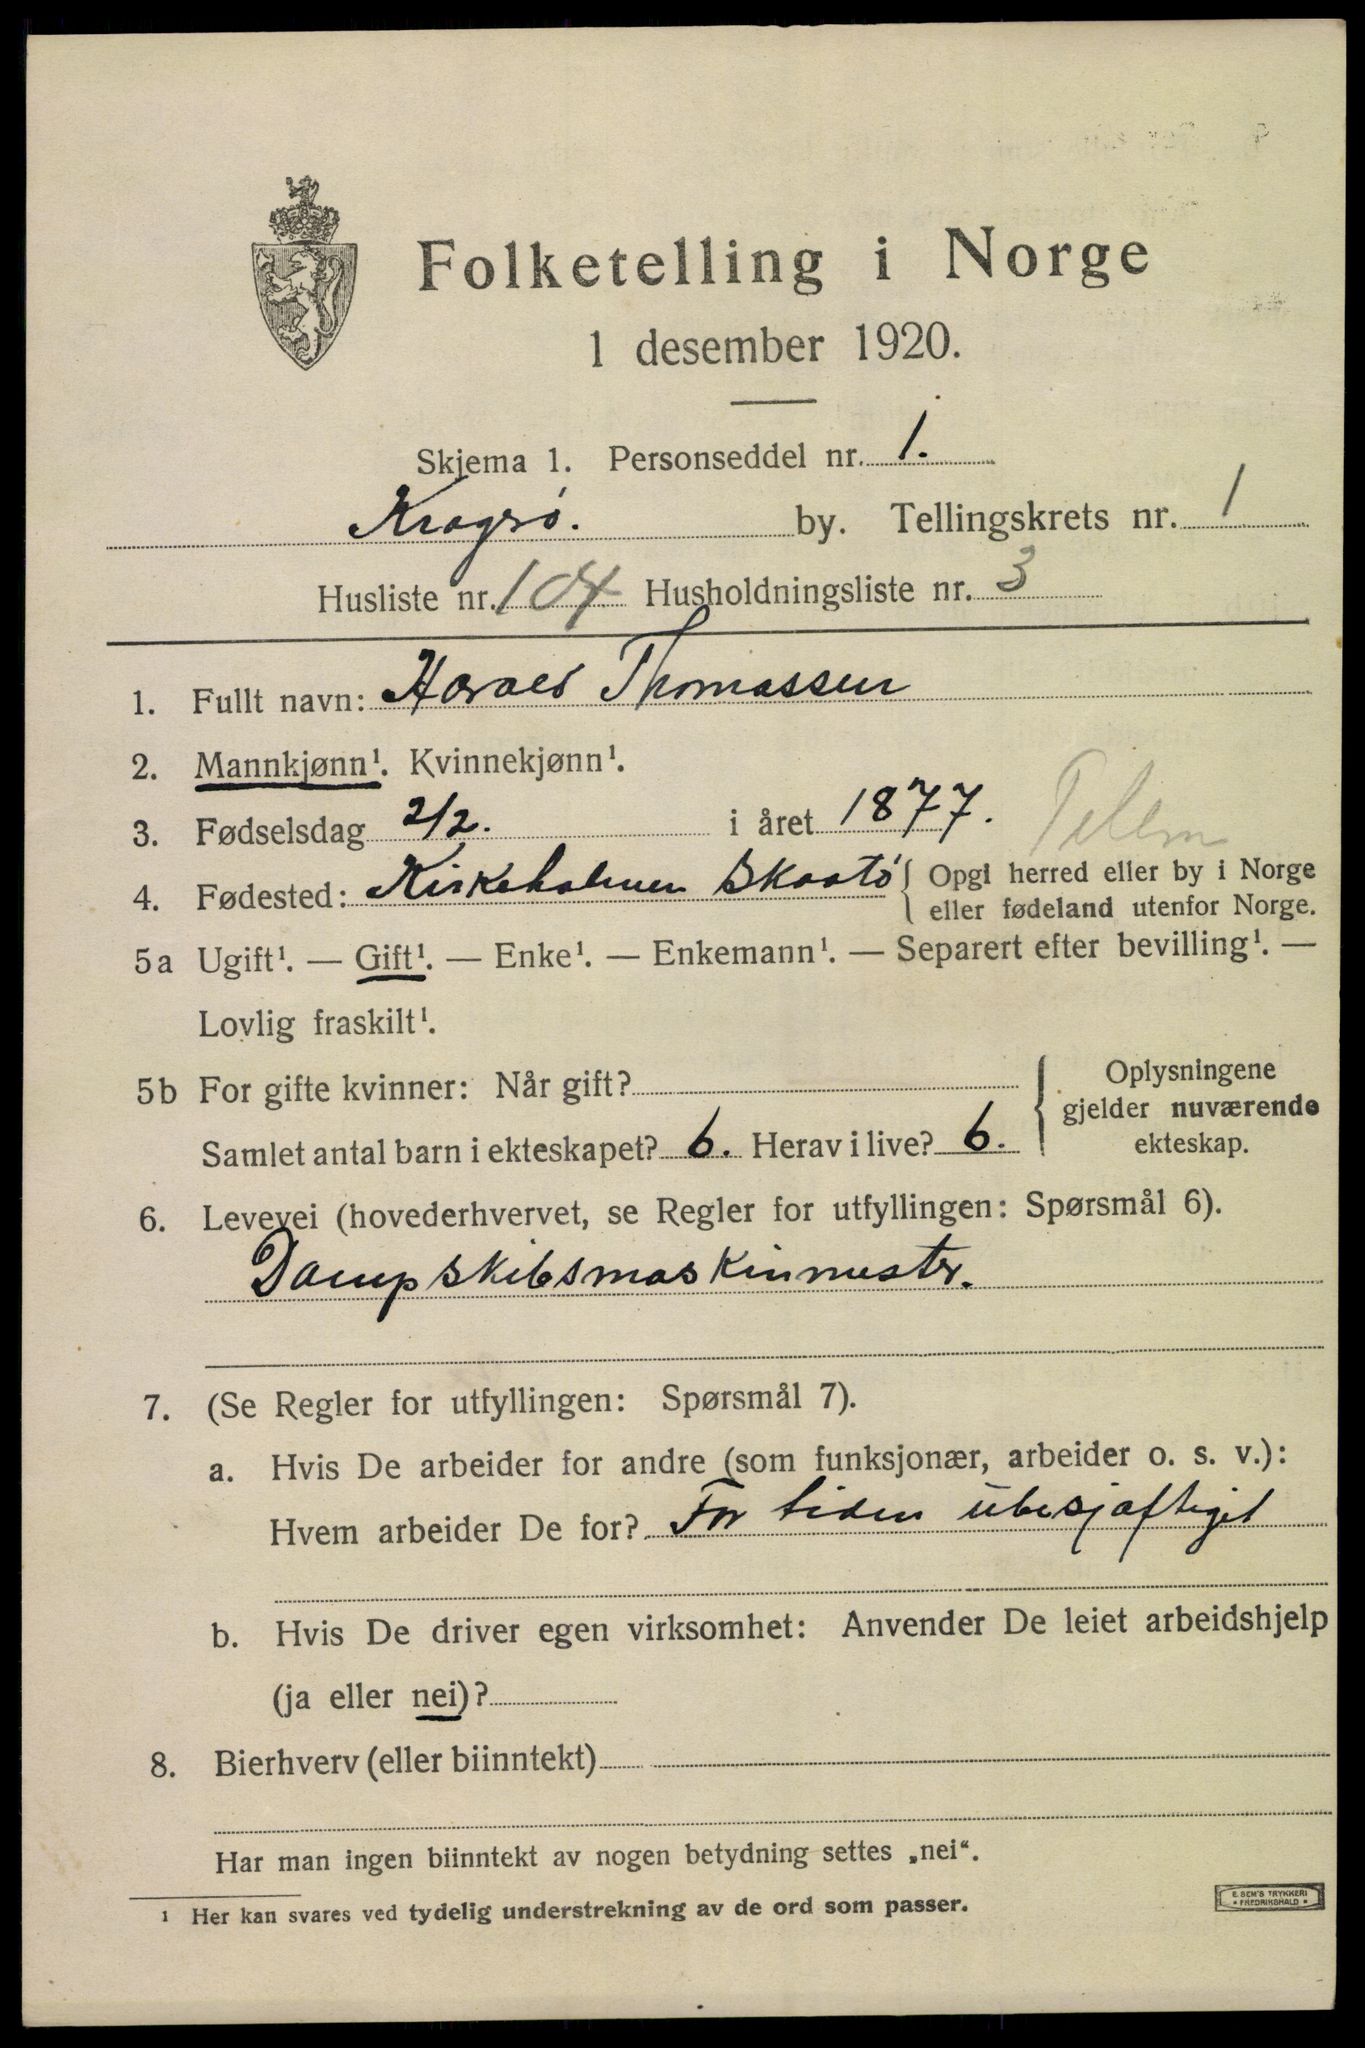 Folketelling i Norge
1 desember 1920.
Skjema 1. Personseddel nr. 1.
Kragrø. by. Tellingskrets nr. 1
Husliste nr. 104 Husholdningsliste nr. 3
1. Fullt navn: Harald Thomassen
2. Mannkjønn¹. Kvinnekjønn¹.
3. Fødselsdag 2/2. i året 1877.
Telem
4. Fødested: Kirkeholmen Skaatö { Opgi herred eller by i Norge
eller fødeland utenfor Norge.
5a Ugift¹. — Gift¹. — Enke¹. — Enkemann¹. — Separert efter bevilling¹. —
Lovlig fraskilt¹.
5b For gifte kvinner: Når gift?
Samlet antal barn i ekteskapet? 6. Herav i live? 6.
Oplysningene
gjelder nuværende
ekteskap.
6. Levevei (hovederhvervet, se Regler for utfyllingen: Spørsmål 6).
Dampskibsmaskinmester.
7. (Se Regler for utfyllingen: Spørsmål 7).
a. Hvis De arbeider for andre (som funksjonær, arbeider o. s. v.):
Hvem arbeider De for? For tiden ubesjæftiget
b. Hvis De driver egen virksomhet: Anvender De leiet arbeidshjelp
(ja eller nei)?
8. Bierhverv (eller biinntekt)
Har man ingen biinntekt av nogen betydning settes „nei“.
¹ Her kan svares ved tydelig understrekning av de ord som passer.
E. SEM'S TRYKKERI
• FREDRIKSHALD •